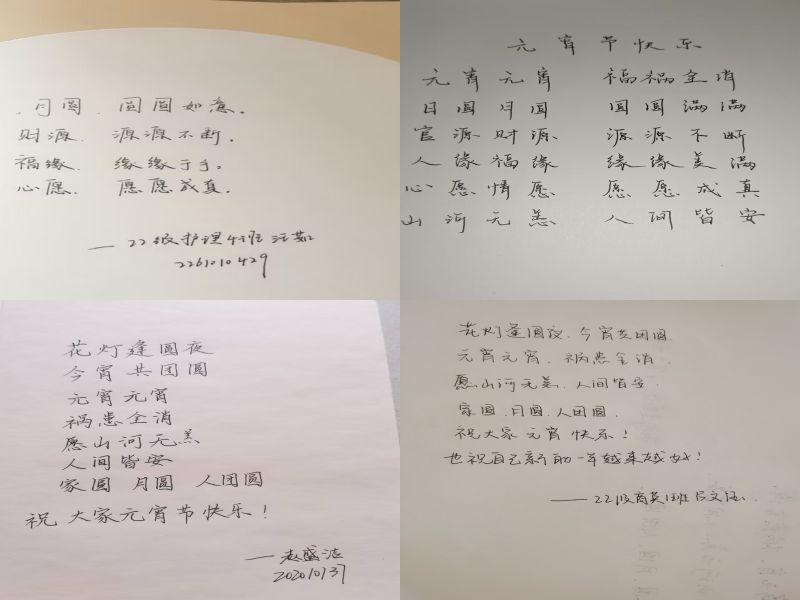 月圆. 圆圆如意.
财源. 源源不断.
福缘. 缘缘于手。
心愿. 愿愿成真.
—22级护理4班 汪茹
2261010429
元宵节快乐
元宵元宵 福祸全消
日圆月圆 圆圆满满
官源财源 源源不断
人缘福缘 缘缘美满
心愿情愿 愿愿成真
山河无恙 人间皆安
花灯逢圆夜
今宵共团圆
元宵元宵
祸患全消
愿山河无恙
人间皆安
家圆 月圆 人团圆
祝大家元宵节快乐!
—赵盛洁
2020101037
花灯逢圆夜.今宵共团圆.
元宵元宵.祸患全消.
愿山河无恙.人间皆安.
家圆.月圆.人团圆.
祝大家元宵快乐!
也祝自己新的一年越来越好!
——22级商英1班